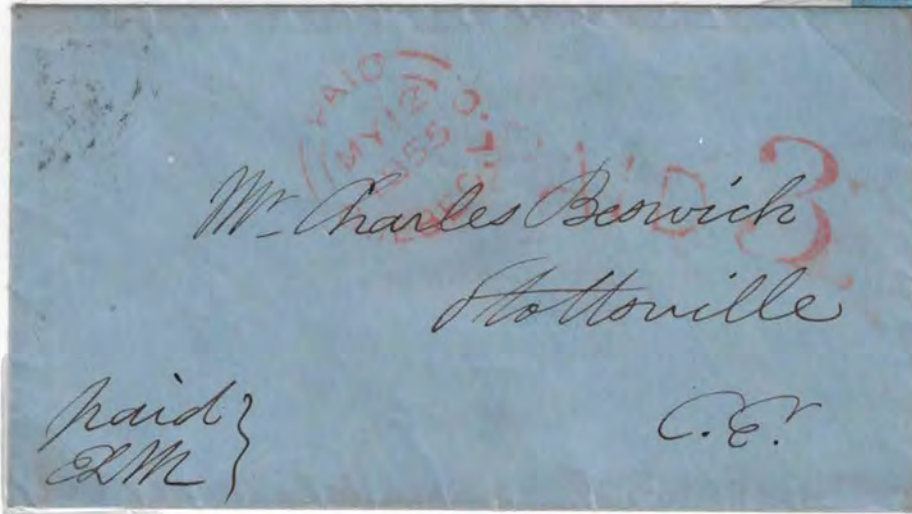 PAID
MY 12
1855
PAID 3
Mr Charles Beswick
Stottsville
C.E.
paid
ELM